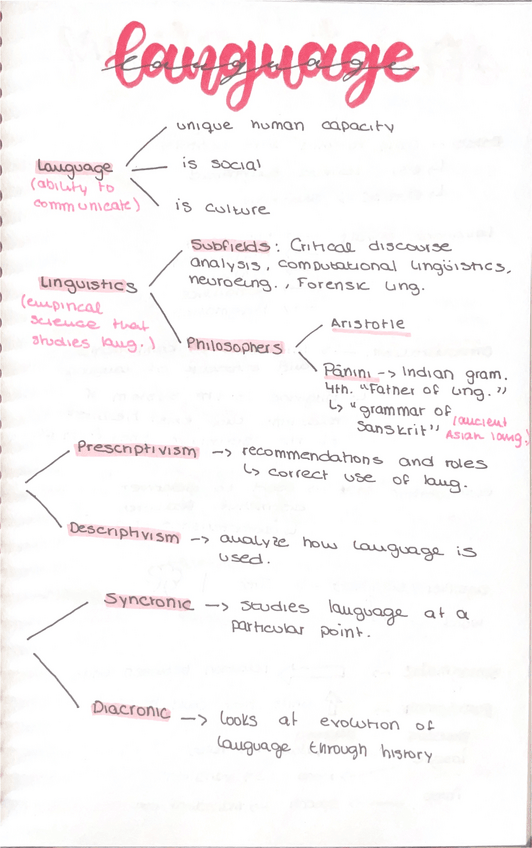 language
unique human capacity
Language
is social
(ability to
communicate)
is culture
Subfields: Critical discourse
analysis, computational lingüistics,
neuroling., Forensic ling.
Linguistics
(empirical
science that
studies lang.)
Philosophers
Aristotle
Pānini -> Indian gram.
4th. "Father of ling."
↳ "grammar of
Sanskrit" (ancient
Asian lang.)
Prescriptivism -> recommendations and roles
↳ correct use of lang.
Descriptivism -> analyze how language is
used.
Syncronic -> studies language at a
particular point.
Diacronic -> looks at evolution of
language through history